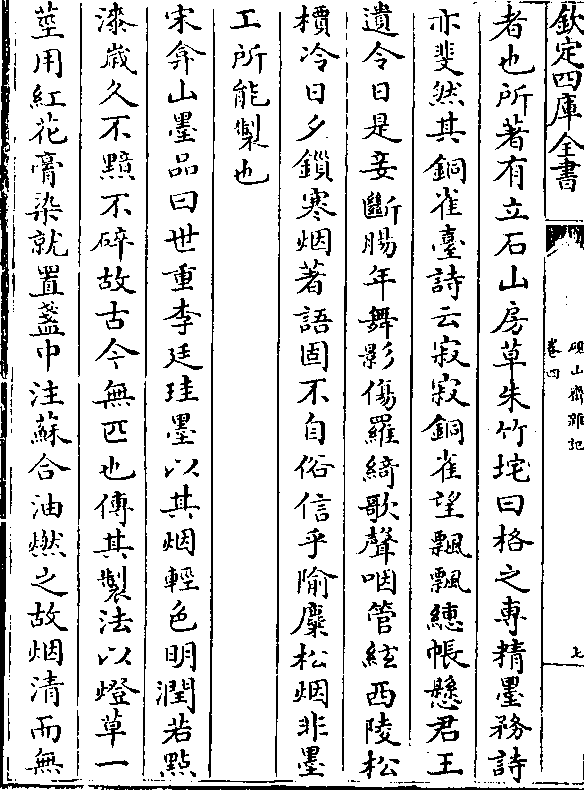 欽定四庫全書
研山齋雜記
卷四
七
者也所著有立石山房草朱竹垞曰格之専精墨務詩
亦斐然其銅雀臺詩云寂寂銅雀望飄飄繐帳懸君王
遺令日是妾斷腸年舞影傷羅綺歌聲咽管絃西陵松
檟冷日夕鎖寒烟著語固不自俗信乎隃麋松烟非墨
工所能製也
宋弇山墨品曰世重李廷珪墨以其烟輕色明潤若㸃
漆歲久不黯不碎故古今無匹也傳其製法以燈草一
莖用紅花膏染就置盞中注蘇合油燃之故烟清而無